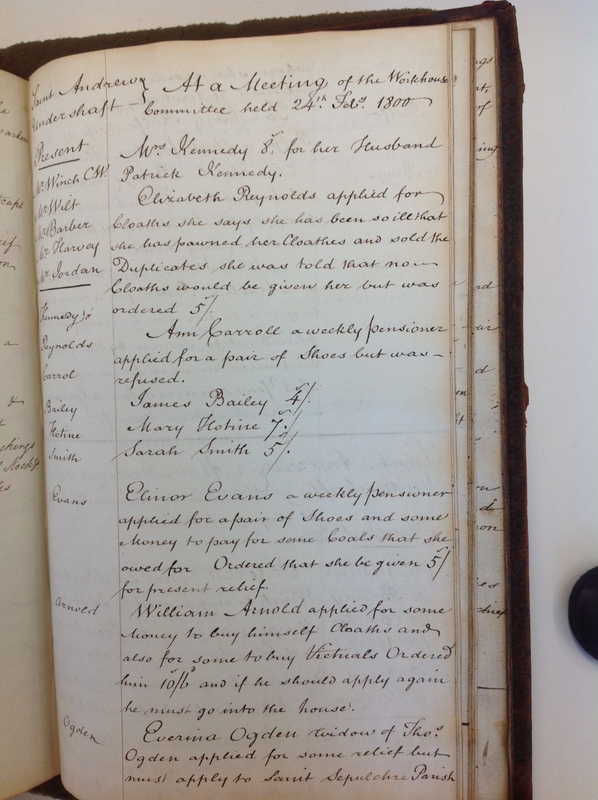 Saint Andrew } At a Meeting of the Workhouse
Undershaft } Committee held 24th Feby. 1800
Present
Mr Winch C.W.
Mr Wilt
Mr Barber
Mr Harvey
Mr Jordan
Mrs Kennedy 8/ for her Husband
Patrick Kennedy.
Elizabeth Reynolds applied for
Cloaths she says she has been so ill that
she has pawned her Cloathes and sold the
Duplicates she was told that no
Cloaths would be given her but was
ordered 5/.
Kennedy
Reynolds
Carrol
Ann Carroll a weekly pensioner
applied for a pair of Shoes but was
refused.
Bailey James Bailey 4/.
Hotine Mary Hotine 7/.
Smith Sarah Smith 5/.
Evans Elinor Evans a weekly pensioner
applied for a pair of Shoes and some
Money to pay for some Coals that she
owed for Ordered that she be given 5/
for present relief.
Arnold William Arnold applied for some
Money to buy himself Cloaths and
also for some to buy Victuals Ordered
him 10/6 and if he should apply again
he must go into the house.
Ogden Everina Ogden widow of Thos.
Ogden applied for some relief but
must apply to Saint Sepulchre Parish